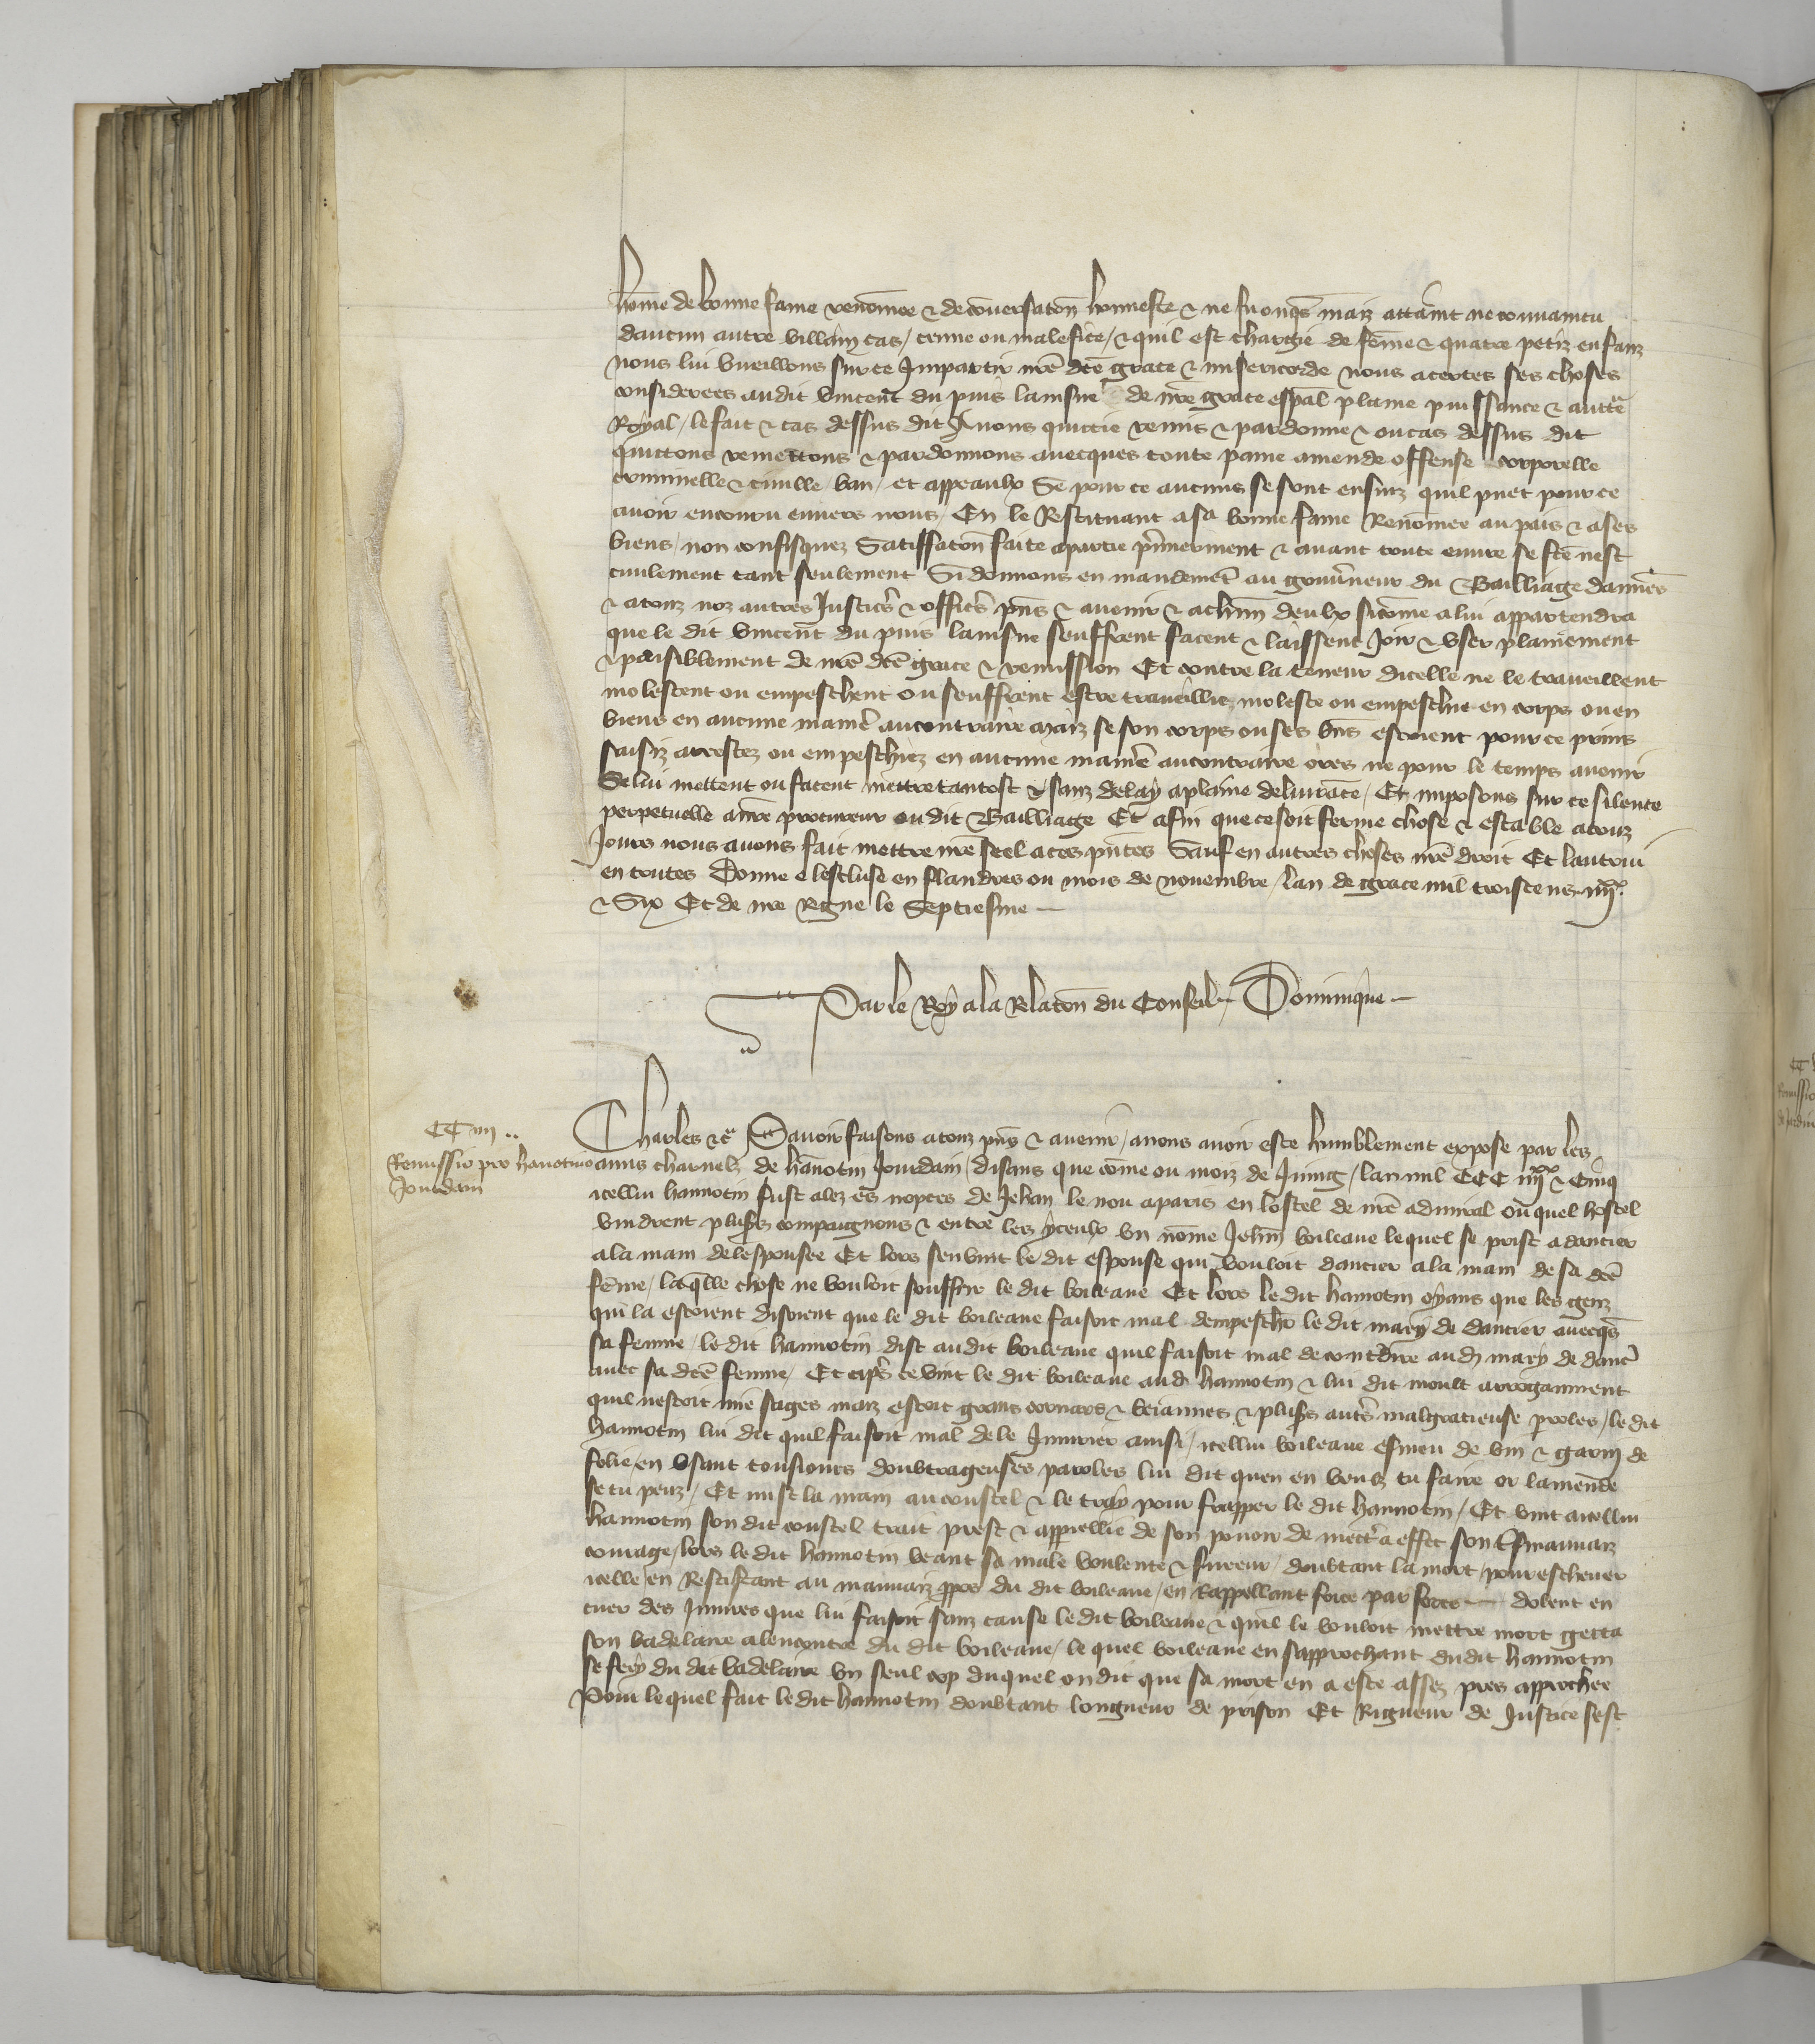 home de bonne fame renomee & de conversaton honneste & ne fu onqs maiz attaint ne convaincu
daucun autre villain cas / crime ou malefice / & quil est chargie de feme & quatre petiz enfanz
nous lui vueillons sur ce Impartir nre dce grace & misericorde nous acertes ses choses
considerees audit vincent du puis lainsne de nre grace espal plaine puissance & auctte
Royal / le fait & cas dessus dit Avons quictie remis & pardonne & ou cas dessus dit
quictons remettons & pardonnons avecques toute paine amende offense corporelle
criminelle & civille / ban / et appeaulx Se pour ce aucuns se sont ensuiz quil puet pour ce
avoir encouru envers nous / En le Restituant a sa bonne fame Renomee au pais & a ses
biens / non confisquez Satiffaton faite a partie primerement & avant toute euvre se fce nest
civilement tant seulement Si donnons en mandemet au gouvneur du Bailliage damies
& a touz noz autres Justics & offics pns & avenir & a chun deulx si come a lui appartendra
que le dit vincent du puis lainsne seuffrent facent & laissent Joir & user plainement
& paisiblement de nre dce grace & remission Et contre la teneur dicelle ne le traveillent
molestent ou empeschent ou seuffrent estre traveillie moleste ou empeschie en corps ou en
biens en aucune manie au contraire maiz se son corps ou ses bns estoient pour ce prins
saisiz arrestez ou empeschiez en aucune manie au contraire ores ne pour le temps avenir
Se lui mettent ou facent mettre tantost & sanz delay a plaine delivrace / Et imposons sur ce silence
perpetuelle a nre procureur ou dit Bailliage Et afin que ce soit ferme chose & estable a touz
Jours nous avons fait mettre nre seel a ces pntes Sauf en autres choses nre droit Et lautrui
en toutes Donne a lescluse en flandres ou mois de novembre / lan de grace mil troiscens iiiixx
& Six Et de nre Regne le Septiesme —
Par le Roy a la Relaton du Conseil — Dominique —
CC iiii ..
Remissio pro hanotino
Jourdain
Charles &c Savoir faisons a touz pns & avenir / a nous avoir este humblement expose par les
amis charnelz de hanotin Jourdain / disans que come ou moiz de Juing / lan mil CCC iiiixx & Cinq
icellui hannotin fust alez es nopces de Jehan le nou a paris en lostel de nre admiral ou quel hostel
vindrent plusrs compaignons & entre les yceulx un nome Jehn boileaue lequel se prist a dancier
a la main de lespousee Et lors senvint le dit espouse qui vouloit dancier a la main de sa dce
feme / laqlle chose ne vouloit souffrir le dit boileaue Et lors le dit hannotin oyans que les genz
qui la estoient disoient que le dit boileaue faisoit mal dempescher le dit mary de dancier avecqs
sa femme / le dit hannotin dist audit boileaue quil faisoit mal de contdire aud mary de danc
avec sa dce femme / Et aps ce vint le dit boileaue aud hannotin & lui dit moult arroganment
quil nestoit mie sages maiz estoit grans cornars & beiannes & plusrs auts malgracieuse proles / le dit
hannotin lui dit quil faisoit mal de le Iniurier ainsi / icellui boileaue esmeu de vin & garni de
folie / en usant tousiours doubtrageuses paroles lui dit quen en veulz tu faire or lamende
se tu peuz / Et mist la main au coustel & le tray pour frapper le dit hannotin / Et vint a icellui
hannotin son dit coustel trait prest & appreillie de son povoir de mectr a effet son mauvaiz
courage / lors le dit hannotin veant sa male voulente & fureur / doubtant la mort / pour eschever
icelle / en Resistant au mauvaiz ppos du dit boileaue / en Rappellant force par force — dolent en
cuer des Iniures que lui faisoit sanz cause le dit boileaue & quil le vouloit mettre mort getta
son badelaire a lencontre du dit boileaue / le quel boileaue en sapprochant du dit hannotin
se fery du dit badelaire un seul cop duquel on dit que sa mort en a este assez pres approchee
Pour lequel fait le dit hannotin doubtant longueur de prison Et Rigueur de Justice sest